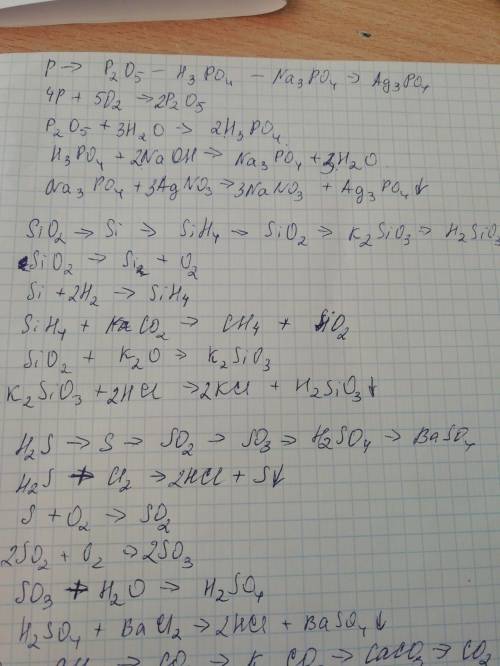 P → P2O5 − H3PO4 − Na3PO4 → Ag3PO4
4P + 5O2 → 2P2O5
P2O5 + 3H2O → 2H3PO4
H3PO4 + 2NaOH → Na3PO4 + 3H2O
Na3PO4 + 3AgNO3 → 3NaNO3 + Ag3PO4↓
SiO2 → Si → SiH4 → SiO2 → K2SiO3 → H2SiO3
SiO2 → Si + O2
Si + 2H2 → SiH4
SiH4 + CO2 → CH4 + SiO2
SiO2 + K2O → K2SiO3
K2SiO3 + 2HCl → 2KCl + H2SiO3↓
H2S → S → SO2 → SO3 → H2SO4 → BaSO4
H2S + Cl2 → 2HCl + S↓
S + O2 → SO2
2SO2 + O2 → 2SO3
SO3 + H2O → H2SO4
H2SO4 + BaCl2 → 2HCl + BaSO4↓
→ CO2